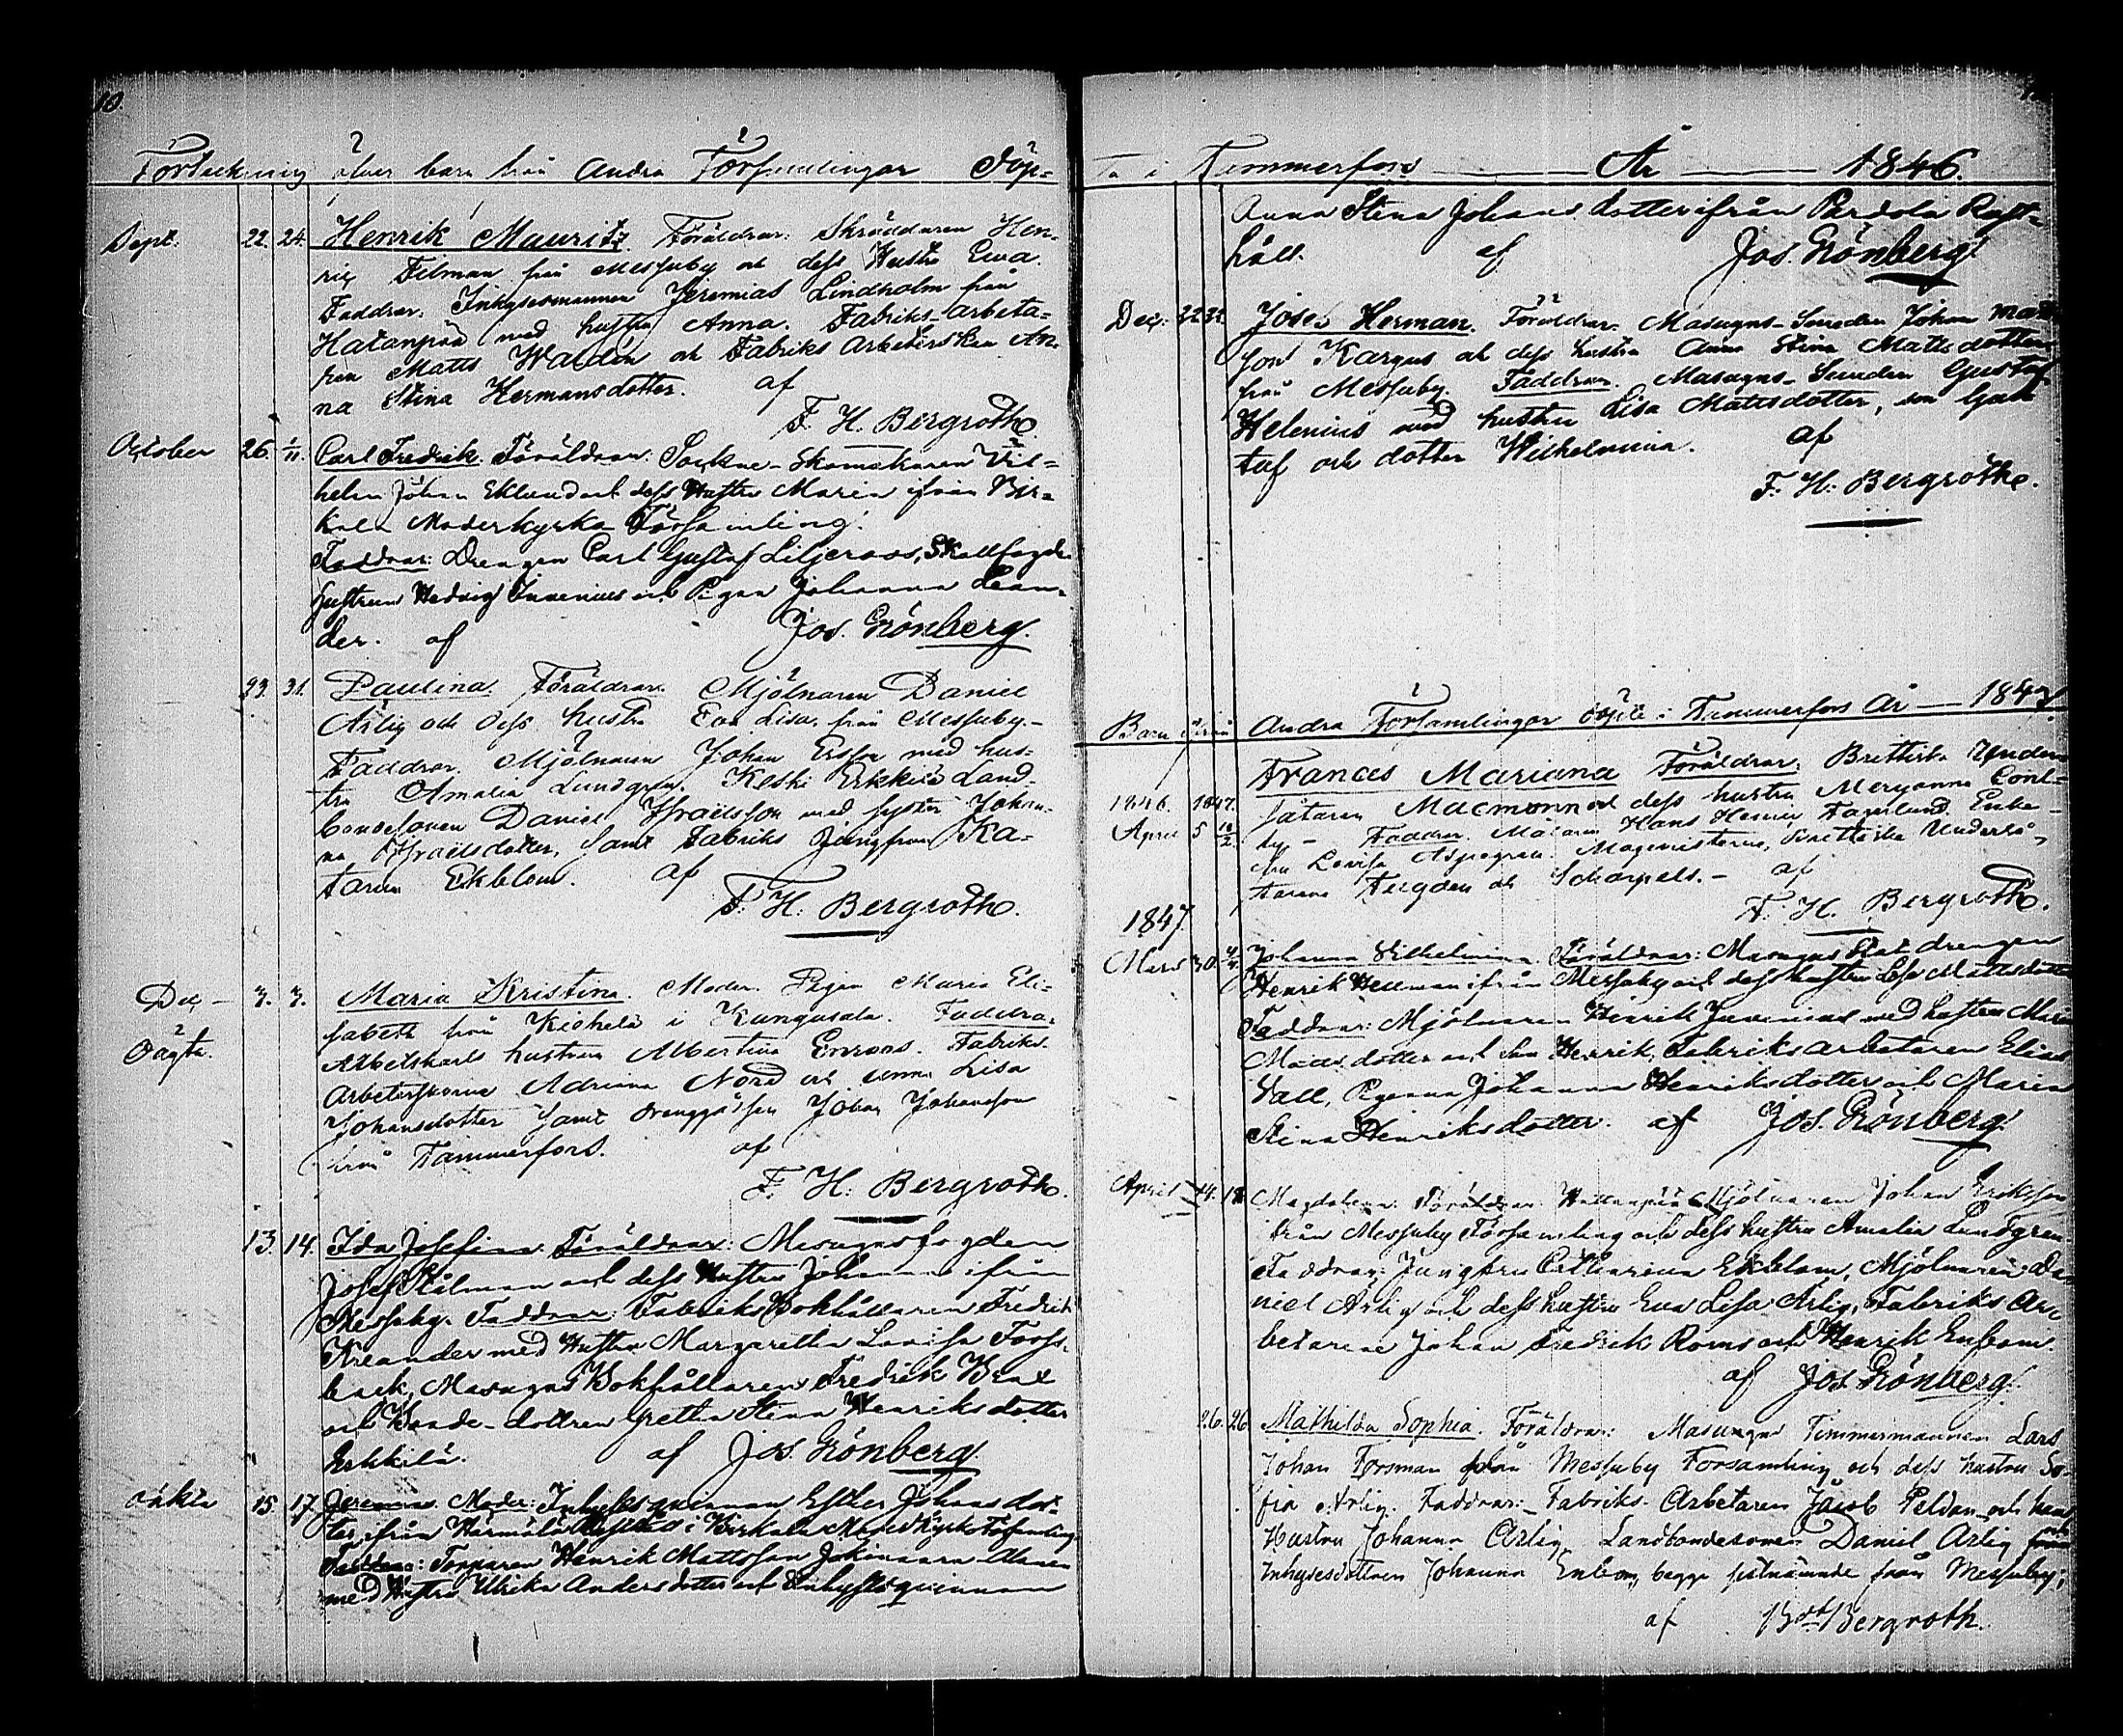 10.
Förteckning öfver barn från Andra Församlingar Döp=
Sept. 22. 24. Henrik Mauritz. Föräldrar: Skräddaren Hen-
ric Filman från Messuby och dess Hustru Eva.
Faddrar. Inhysesmannen Jeremias Lindholm från
Hatanpää med hustru Anna. Fabriks-arbeta-
ren Matts Waldén och Fabriks Arbeterskan An-
na Stina Hermansdotter. af
F. H. Bergroth.
October 26. 1/11. Carl Fredrik. Föräldrar: Sockne-Skomakaren Vil=
helm Johan Eklund och dess Hustru Maria ifrån Bir-
kala Moderkyrko Församling.
Faddrar: Drengen Carl Gustaf Liljeroos, Skallfogde
hustrun Hedvig Juvenius och Pigan Johanna Lean-
der. af Jos. Grönberg.
23. 31. Paulina. Föräldrar. Mjölnaren Daniel
Ärlig och dess hustru Eva Lisa från Messuby.-
Faddrar. Mjölnaren Johan Ersson med hus-
tru Amalia Lundgren. Keski Erkkilä Land-
bondesonen Daniel Israelsson med syster Johan-
na Israelsdotter, samt Fabriks Jungfrun Ka-
tarina Ekblom. af
F. H. Bergroth.
Dec. 3. 3. Maria Kristina. Moder. Pigan Maria Eli-
Oägta. sabeth från Kichelä i Kangasala. Faddrar.
Arbetskarls hustrun Albertina Enroos. Fabriks
Arbeterskorna Adriana Nord och Anna Lisa
Johansdotter samt drenggåssen Johan Johansson
från Tammerfors. af
F. H. Bergroth.
13. 14. Ida Josefina. Föräldrar: Masugnsfogden
Josef Stålman och dess Hustru Johanna ifrån
Messuby. Faddrar: Fabriks Bokhållaren Fredrik
Kreander med Hustru Margaretha Lovisa Forss-
back, Masugns Bokhållaren Fredrik Brax
och Bonde-dottren Gretha Stina Henriksdotter
Erkkilä. af Jos. Grönberg.
oäkta 15. 17. Jeremias. Moder: Inhysesqvinnan Esther Johansdot-
ter, ifrån Härmälä i Birkala Moderkyrko Församling.
Faddrar: Torparen Henrik Mattsson
med Hustru Ulrika Andersdotter och Inhysesqvinnan
ta i Tammerfors År 1846.
Anna Stina Johansdotter ifrån Perdola Rust-
håll. af Jos. Grönberg.
Dec. 22. 22. Josef Herman. Föräldrar. Masugns-Smeden Johan Matts
son Kargus och dess hustru Anna Stina Mattsdotter
från Messuby. Faddrar. Masugns-Smeden Gustaf
Helenius med hustru Lisa Mattsdotter, son Gus
taf och dotter Wilhelmina. af
F. H. Bergroth.
Barn ifrån Andra Församlingar döpte i Tammerfors År 1847.
1846. 1847. Frances Mariana Föräldrar. Brittiska Under
April 5 10/2. såtaren Macmonn och dess hustru Meryanne Cont-
ty - Faddrar. Målaren Hans Henric Fagerlund. Enke-
fru Lovisa Aspegren. Magenisterne, Brittiska Underså-
tarena Fergden och Scharpels.- af
F. H. Bergroth.
1847.
Mars 30. 4/4. Johanna Vilhelmina. Föräldrar: Masugns Stat drengen
Henrik Hellman ifrån Messuby och dess hustru Lisa Mattsdotter
Faddrar: Mjölnaren Henrik Juvenius med hustru Maria
Mattsdotter och son Henrik, Fabriks arbetaren Elias
Vall, Pigorna Johanna Henriksdotter och Maria
Stina Henriksdotter. af Jos. Grönberg.
April 14. 18. Magdalena. Föräldrar: Hattanpää Mjölnaren Johan Eriksson
från Messuby Församling och dess hustru Amalia Lundgren
Faddrar: Jungfru Catharina Ekblom, Mjölnaren Da-
niel Ärlig och dess hustru Eva Lisa Ärlig, Fabriks Ar-
betarene Johan Fredrik Roms och Henrik Enbom.
af Jos. Grönberg.
26. 26. Mathilda Sophia. Föräldrar: Masugns Timmermannen Lars
Johan Forsman från Messuby Församling och dess hustru So-
fia Ärlig. Faddrar:- Fabriks-Arbetaren Jacob Peldan och hans
Hustru Johanna Ärlig, Landbondesonen Daniel Ärlig och
Inhysesdottren Johanna Enbom, begge sistnämnde från Messuby;
af Bergroth.